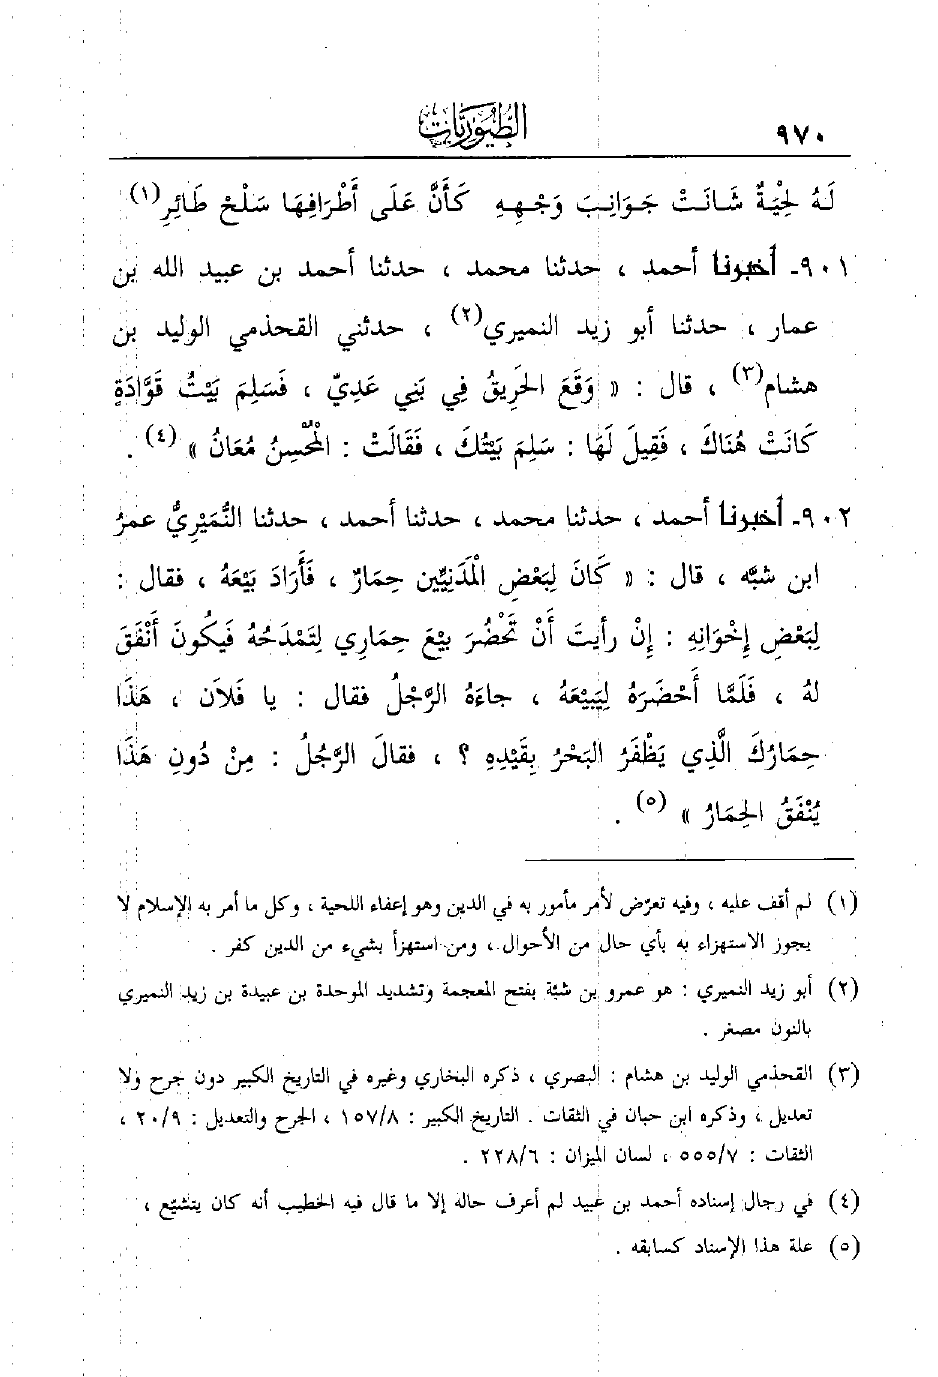 ٩٧٠
الطيوريات
لَهُ لِحْيَةٌ شَانَتْ جَوَانِبَ وَجْهِهِ كَأَنَّ عَلَى أَطْرَافِهَا سَلْحَ طَائِرِ(١)
٩٠١- أخبرنا أحمد ، حدثنا محمد ، حدثنا أحمد بن عبيد الله بن
عمار ، حدثنا أبو زيد النميري(٢) ، حدثني القحذمي الوليد بن
هشام(٣) ، قال : « وَقَعَ الحَرِيقُ فِي بَنِي عَدِيّ ، فَسَلِمَ بَيْتُ قَوَّادَةٍ
كَانَتْ هُنَاكَ ، فَقِيلَ لَهَا : سَلِمَ بَيْتُكَ ، فَقَالَتْ : الْمُحْسِنُ مُعَانٌ » (٤) .
٩٠٢- أخبرنا أحمد ، حدثنا محمد ، حدثنا أحمد ، حدثنا النُّمَيْرِيُّ عمرُ
ابن شبَّه ، قال : « كَانَ لِبَعْضِ الْمَدَنِيِّين حِمَارٌ ، فَأَرَادَ بَيْعَهُ ، فقال :
لِبَعْضِ إِخْوَانِهِ : إِنْ رأيتَ أَنْ تَحْضُرَ بَيْعَ حِمَارِي لِتَمْدَحُهُ فَيَكُونَ أَنْفَقَ
لهُ ، فَلَمَّا أَحْضَرَهُ لِيَبِيْعَهُ ، جاءَهُ الرَّجُلُ فقال : يا فَلَان ، هَذَا
حِمَارُكَ الَّذِي يَظْفَرُ البَحْرُ بِقَيْدِهِ ؟ ، فقالَ الرَّجُلُ : مِنْ دُونِ هَذَا
يُنْفَقُ الحِمَارُ » (٥) .
(١) لم أقف عليه ، وفيه تعرّض لأمر مأمور به في الدين وهو إعفاء اللحية ، وكل ما أمر به الإسلام لا
يجوز الاستهزاء به بأي حال من الأحوال ، ومن استهزأ بشيء من الدين كفر .
(٢) أبو زيد النميري : هو عمرو بن شبة بفتح المعجمة وتشديد الموحدة بن عبيدة بن زيد النميري
بالنون مصغر .
(٣) القحذمي الوليد بن هشام : البصري ، ذكره البخاري وغيره في التاريخ الكبير دون جرح ولا
تعديل ، وذكره ابن حبان في الثقات . التاريخ الكبير : ١٥٧/٨ ، الجرح والتعديل : ٢٠/٩ ،
الثقات : ٥٥٥/٧ ، لسان الميزان : ٢٢٨/٦ .
(٤) في رجال إسناده أحمد بن عبيد لم أعرف حاله إلا ما قال فيه الخطيب أنه كان يتشيّع ،
(٥) علة هذا الإسناد كسابقه .